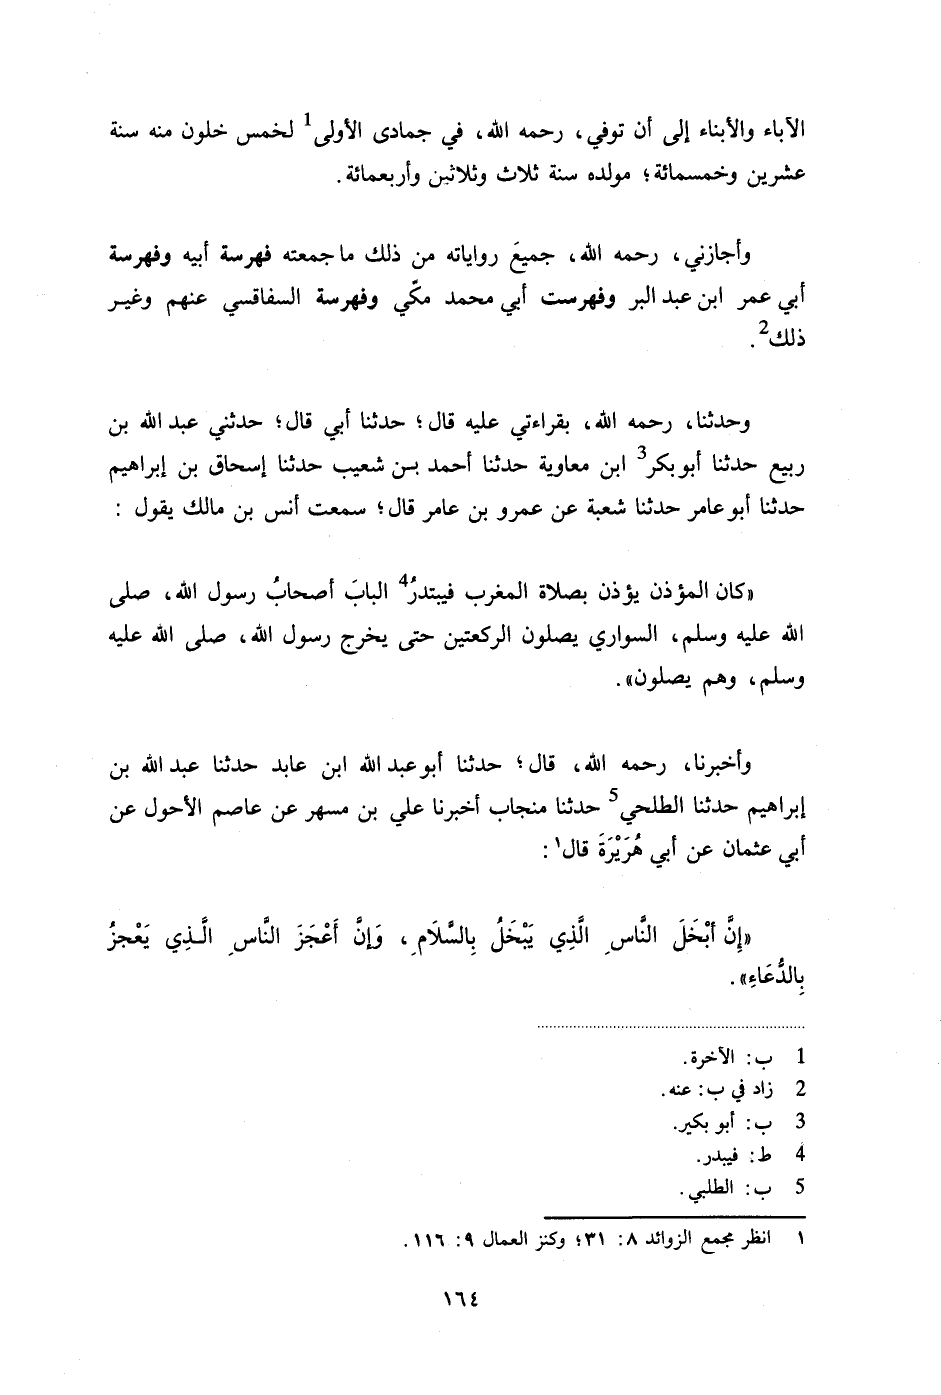 الآباء والأبناء إلى أن توفي، رحمه الله، في جمادى الأولى1 لخمس خلون منه سنة
عشرين وخمسمائة؛ مولده سنة ثلاث وثلاثين وأربعمائة.
وأجازني، رحمه الله، جميعَ رواياته من ذلك ما جمعته فهرسة أبيه وفهرسة
أبي عمر ابن عبد البر وفهرست أبي محمد مكّي وفهرسة السفاقسي عنهم وغيـر
ذلك2.
وحدثنا، رحمه الله، بقراءتي عليه قال؛ حدثنا أبي قال؛ حدثني عبد الله بن
ربيع حدثنا أبو بكر3 ابن معاوية حدثنا أحمد بـن شعيب حدثنا إسحاق بن إبراهيم
حدثنا أبو عامر حدثنا شعبة عن عمرو بن عامر قال؛ سمعت أنس بن مالك يقول :
«كان المؤذن يؤذن بصلاة المغرب فيبتدرُ4 البابَ أصحابُ رسول الله، صلى
الله عليه وسلم، السواري يصلون الركعتين حتى يخرج رسول الله، صلى الله عليه
وسلم، وهم يصلون».
وأخبرنا، رحمه الله، قال؛ حدثنا أبو عبد الله ابن عابد حدثنا عبد الله بن
إبراهيم حدثنا الطلحي5 حدثنا منجاب أخبرنا علي بن مسهر عن عاصم الأحول عن
أبي عثمان عن أبي هُرَيْرَةَ قال١ :
«إِنَّ أبْخَلَ النَّاسِ الَّذِي يَبْخَلُ بِالسَّلَامِ، وَإِنَّ أَعْجَزَ النَّاسِ الَّـذِي يَعْجزُ
بِالدُّعَاءِ».
1 ب: الآخرة.
2 زاد في ب: عنه.
3 ب: أبو بكير.
4 ط: فيبدر.
5 ب: الطلبي.
١ انظر مجمع الزوائد ٨: ٣١؛ وكنز العمال ٩: ١١٦.
١٦٤